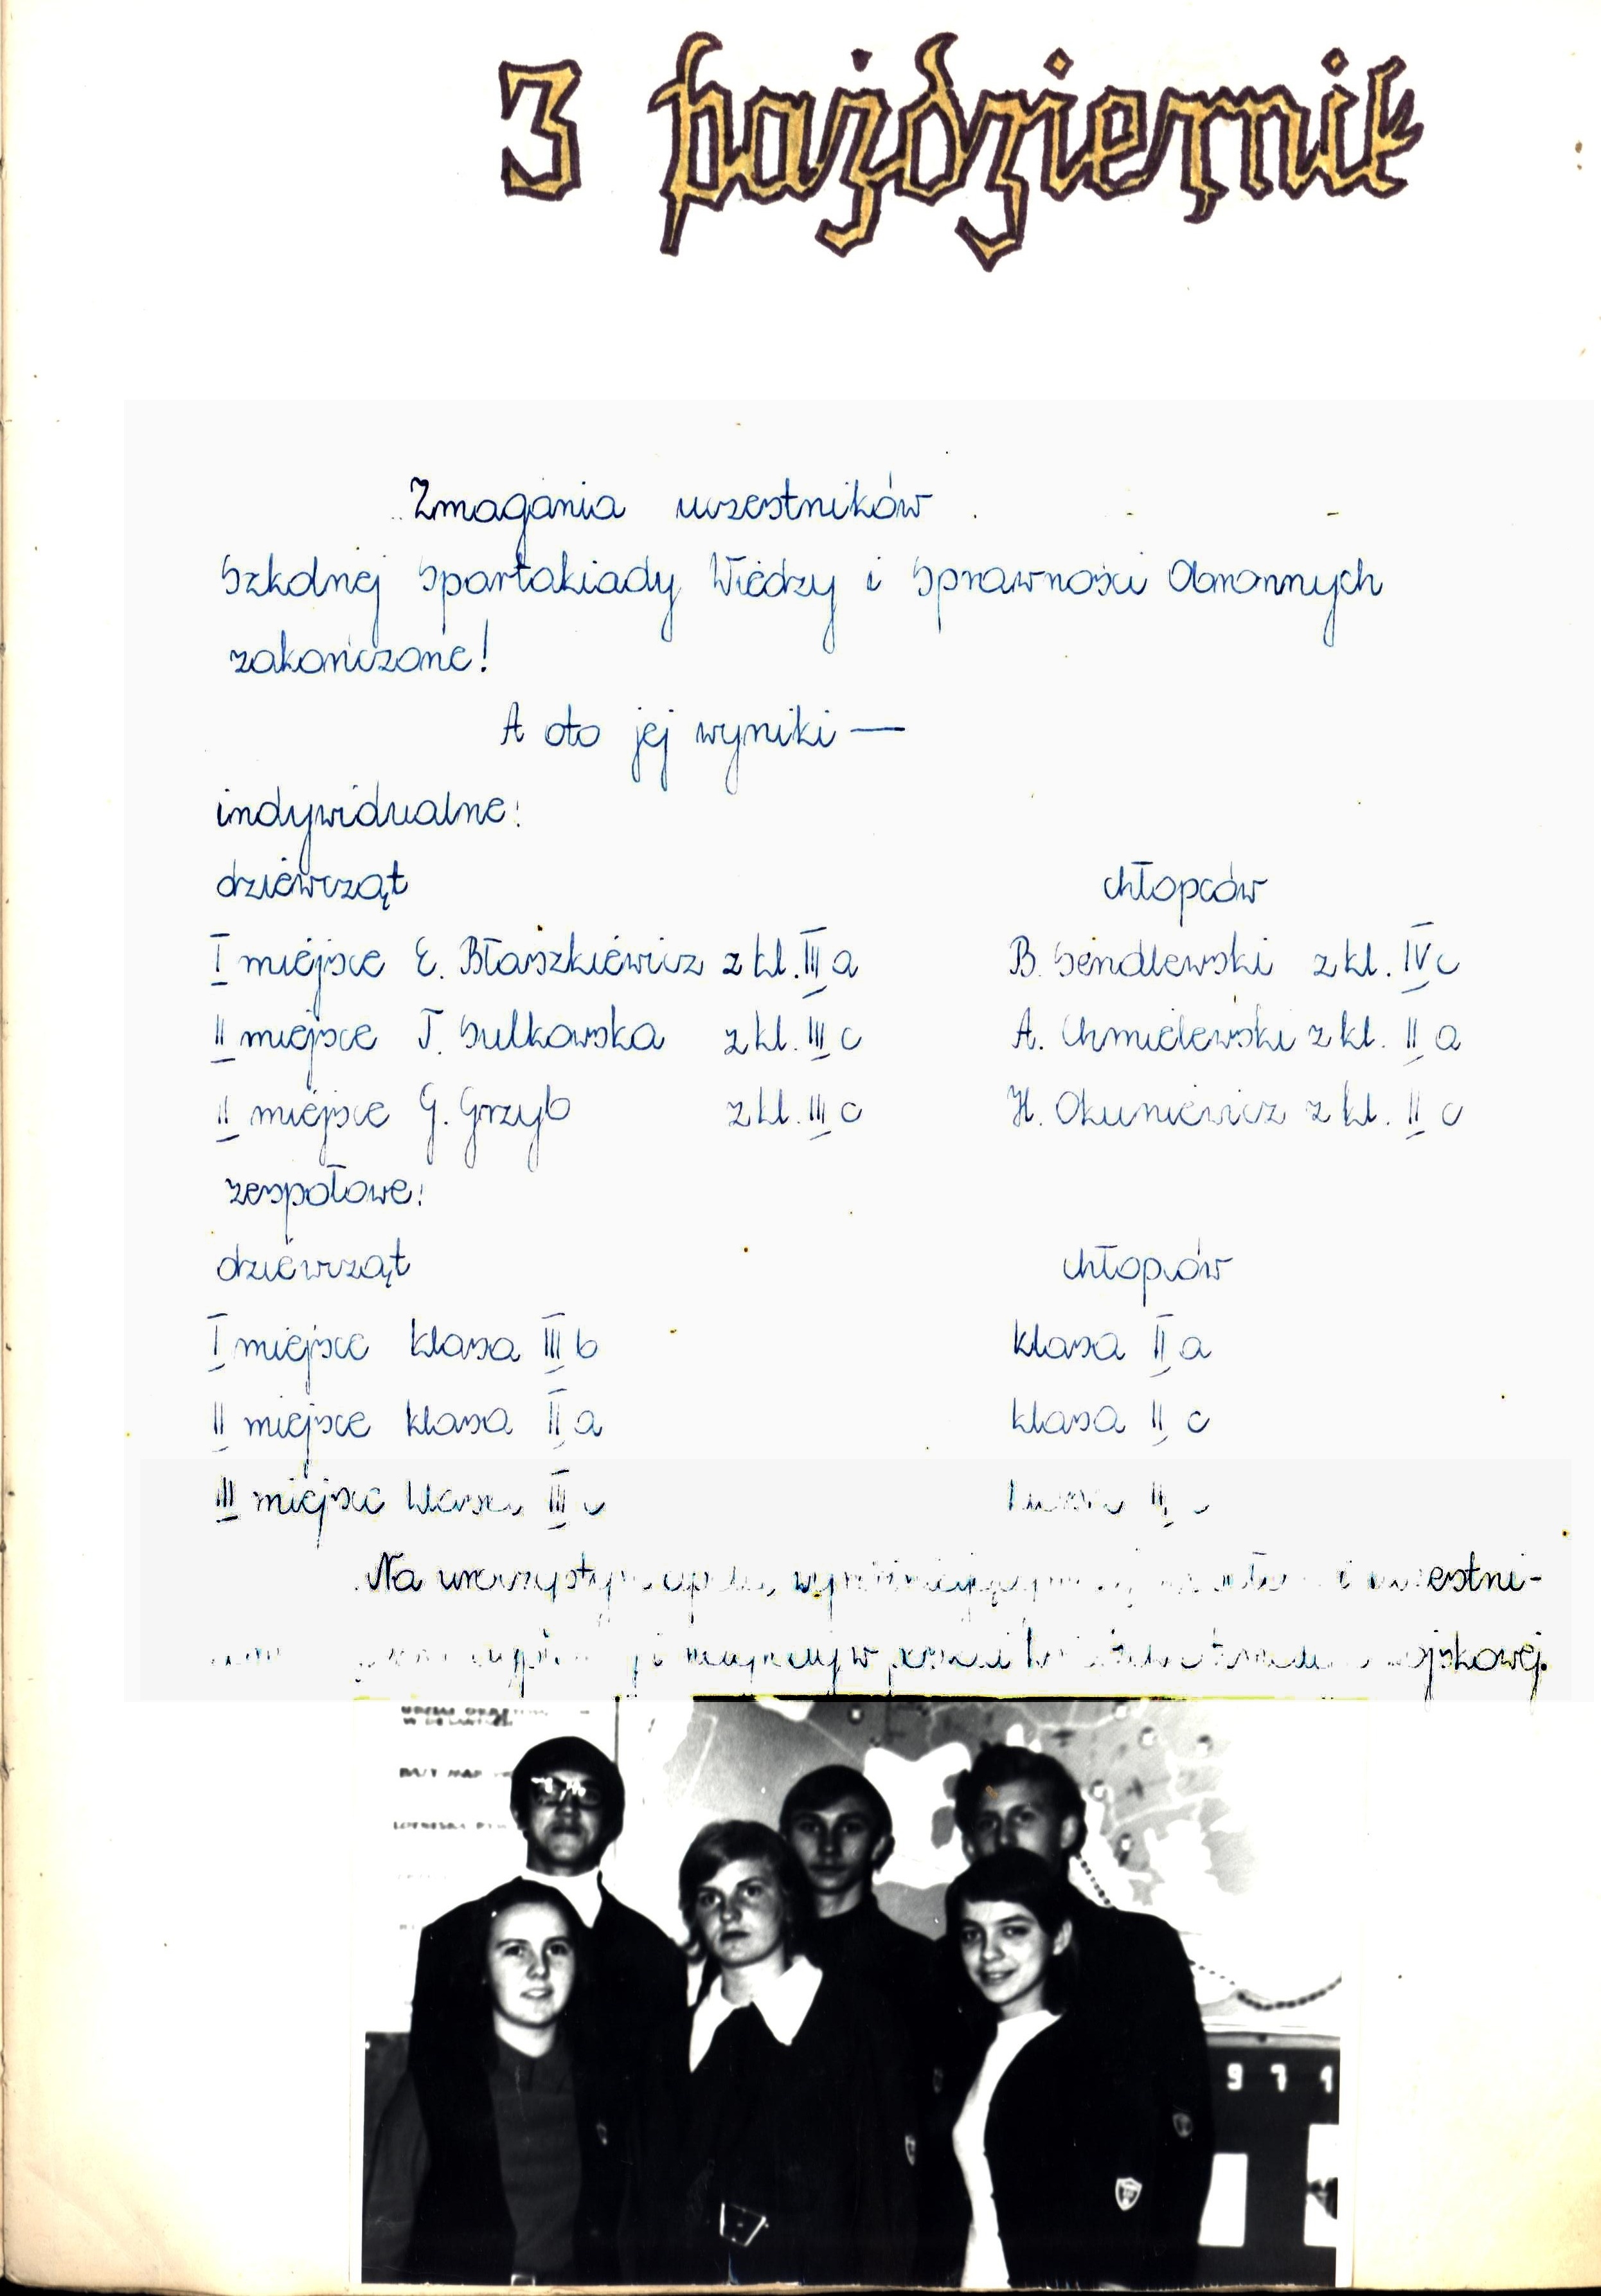 3 październik
Zmagania uczestników
Szkolnej Spartakiady Wiedzy i Sprawności Obronnych
zakończone!
A oto jej wyniki —
indywidualne:
dziewcząt chłopców
I miejsce E. Błaszkiewicz z kl. III a B. Sendlewski z kl. IV c
II miejsce T. Sulkowska z kl. III c A. Chmielewski z kl. II a
II miejsce G. Grzyb z kl. III c H. Okuniewicz z kl. II c
zespołowe:
dziewcząt chłopców
I miejsce klasa III b klasa II a
II miejsce klasa II a klasa II c
III miejsce klasa III c klasa
Na i
W DESANTACH
BAZY
LOTNISKA
9 7 1